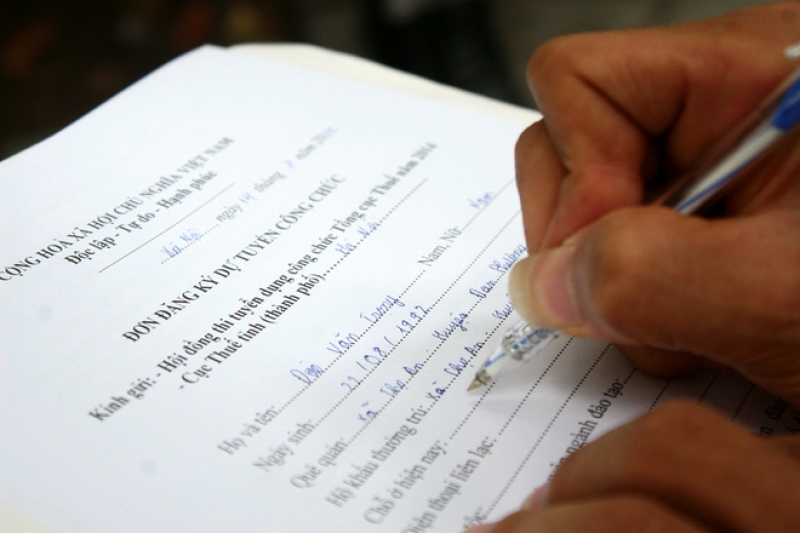 CỘNG HOÀ XÃ HỘI CHỦ NGHĨA VIỆT NAM
Độc lập - Tự do - Hạnh phúc
Hà Nội, ngày 14 tháng năm
ĐƠN ĐĂNG KÝ DỰ TUYỂN CÔNG CHỨC
Kính gửi: - Hội đồng thi tuyển dụng công chức Tổng cục Thuế năm 2014
- Cục Thuế tỉnh (thành phố) Hà Nội
Họ và tên: Văn Trọng Nam, Nữ: Nam
Ngày sinh: 22/08/1992
Quê quán: Xã Thọ An Huyện Đan Phượng
Hộ khẩu thường trú: Xã Thọ An
Chỗ ở hiện nay:
Điện thoại liên lạc:
ngành đào tạo: